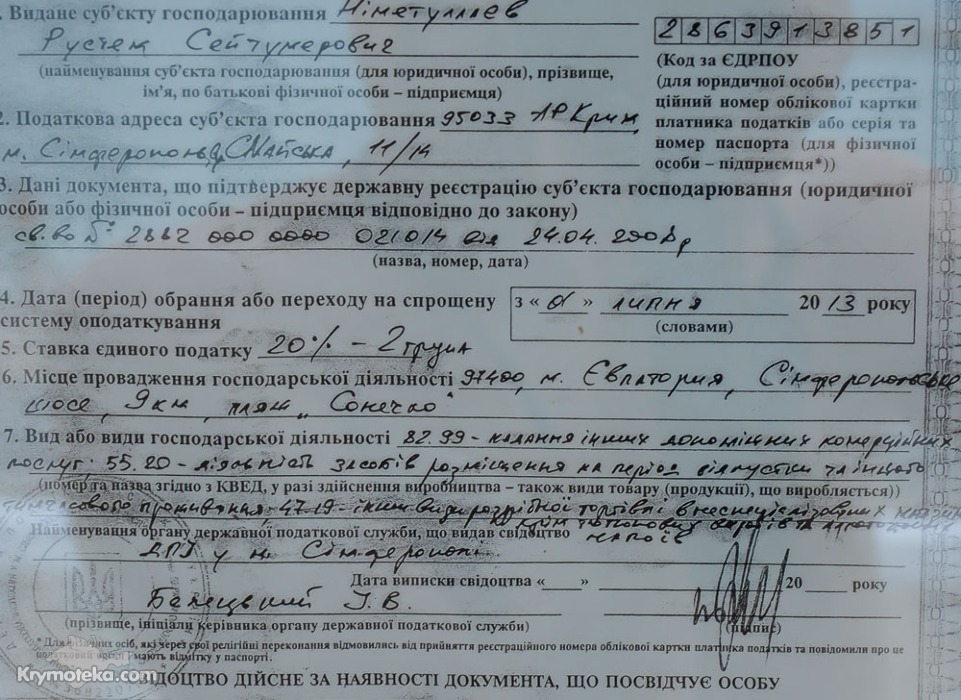 . Видане суб'єкту господарювання Німетуллаєв
Рустем Сейтумерович
2 8 6 3 9 1 3 8 5 1
(найменування суб'єкта господарювання (для юридичної особи), прізвище,
ім'я, по батькові фізичної особи – підприємця)
(Код за ЄДРПОУ
(для юридичної особи), реєстра-
ційний номер облікової картки
платника податків або серія та
номер паспорта (для фізичної
особи – підприємця*))
2. Податкова адреса суб'єкта господарювання 95033 АР Крим,
м. Сімферополь, Майська, 11/14
3. Дані документа, що підтверджує державну реєстрацію суб'єкта господарювання (юридичної
особи або фізичної особи – підприємця відповідно до закону)
св-во № 2882 000 0000 021014 від 24.04. р
(назва, номер, дата)
4. Дата (період) обрання або переходу на спрощену
систему оподаткування
з « 01 » липня 20 13 року
(словами)
5. Ставка єдиного податку 20% – 2 група
6. Місце провадження господарської діяльності 97400, м. Євпатория, Сімферопольське
шосе, 9 км, пляж „Сонечко"
7. Вид або види господарської діяльності 82.99 - надання інших допоміжних комерційних
послуг; 55.20 - діяльність засобів розміщення на період відпустки та іншого
(номер та назва згідно з КВЕД, у разі здійснення виробництва – також види товару (продукції), що виробляється))
тимчасового проживання; 47.19 - інші види роздрібної торгівлі в неспеціалізованих
крім тютюнових виробів та алкогольних
Найменування органу державної податкової служби, що видав свідоцтво напоїв
ДПІ у м. Сімферополі
Дата виписки свідоцтва « » 20 року
І. В.
(прізвище, ініціали керівника органу державної податкової служби)
(підпис)
* Для фізичних осіб, які через свої релігійні переконання відмовились від прийняття реєстраційного номера облікової картки платника податків та повідомили про це
податковий орган і мають відмітку у паспорті.
ІДОЦТВО ДІЙСНЕ ЗА НАЯВНОСТІ ДОКУМЕНТА, ЩО ПОСВІДЧУЄ ОСОБУ
Krymoteka.com